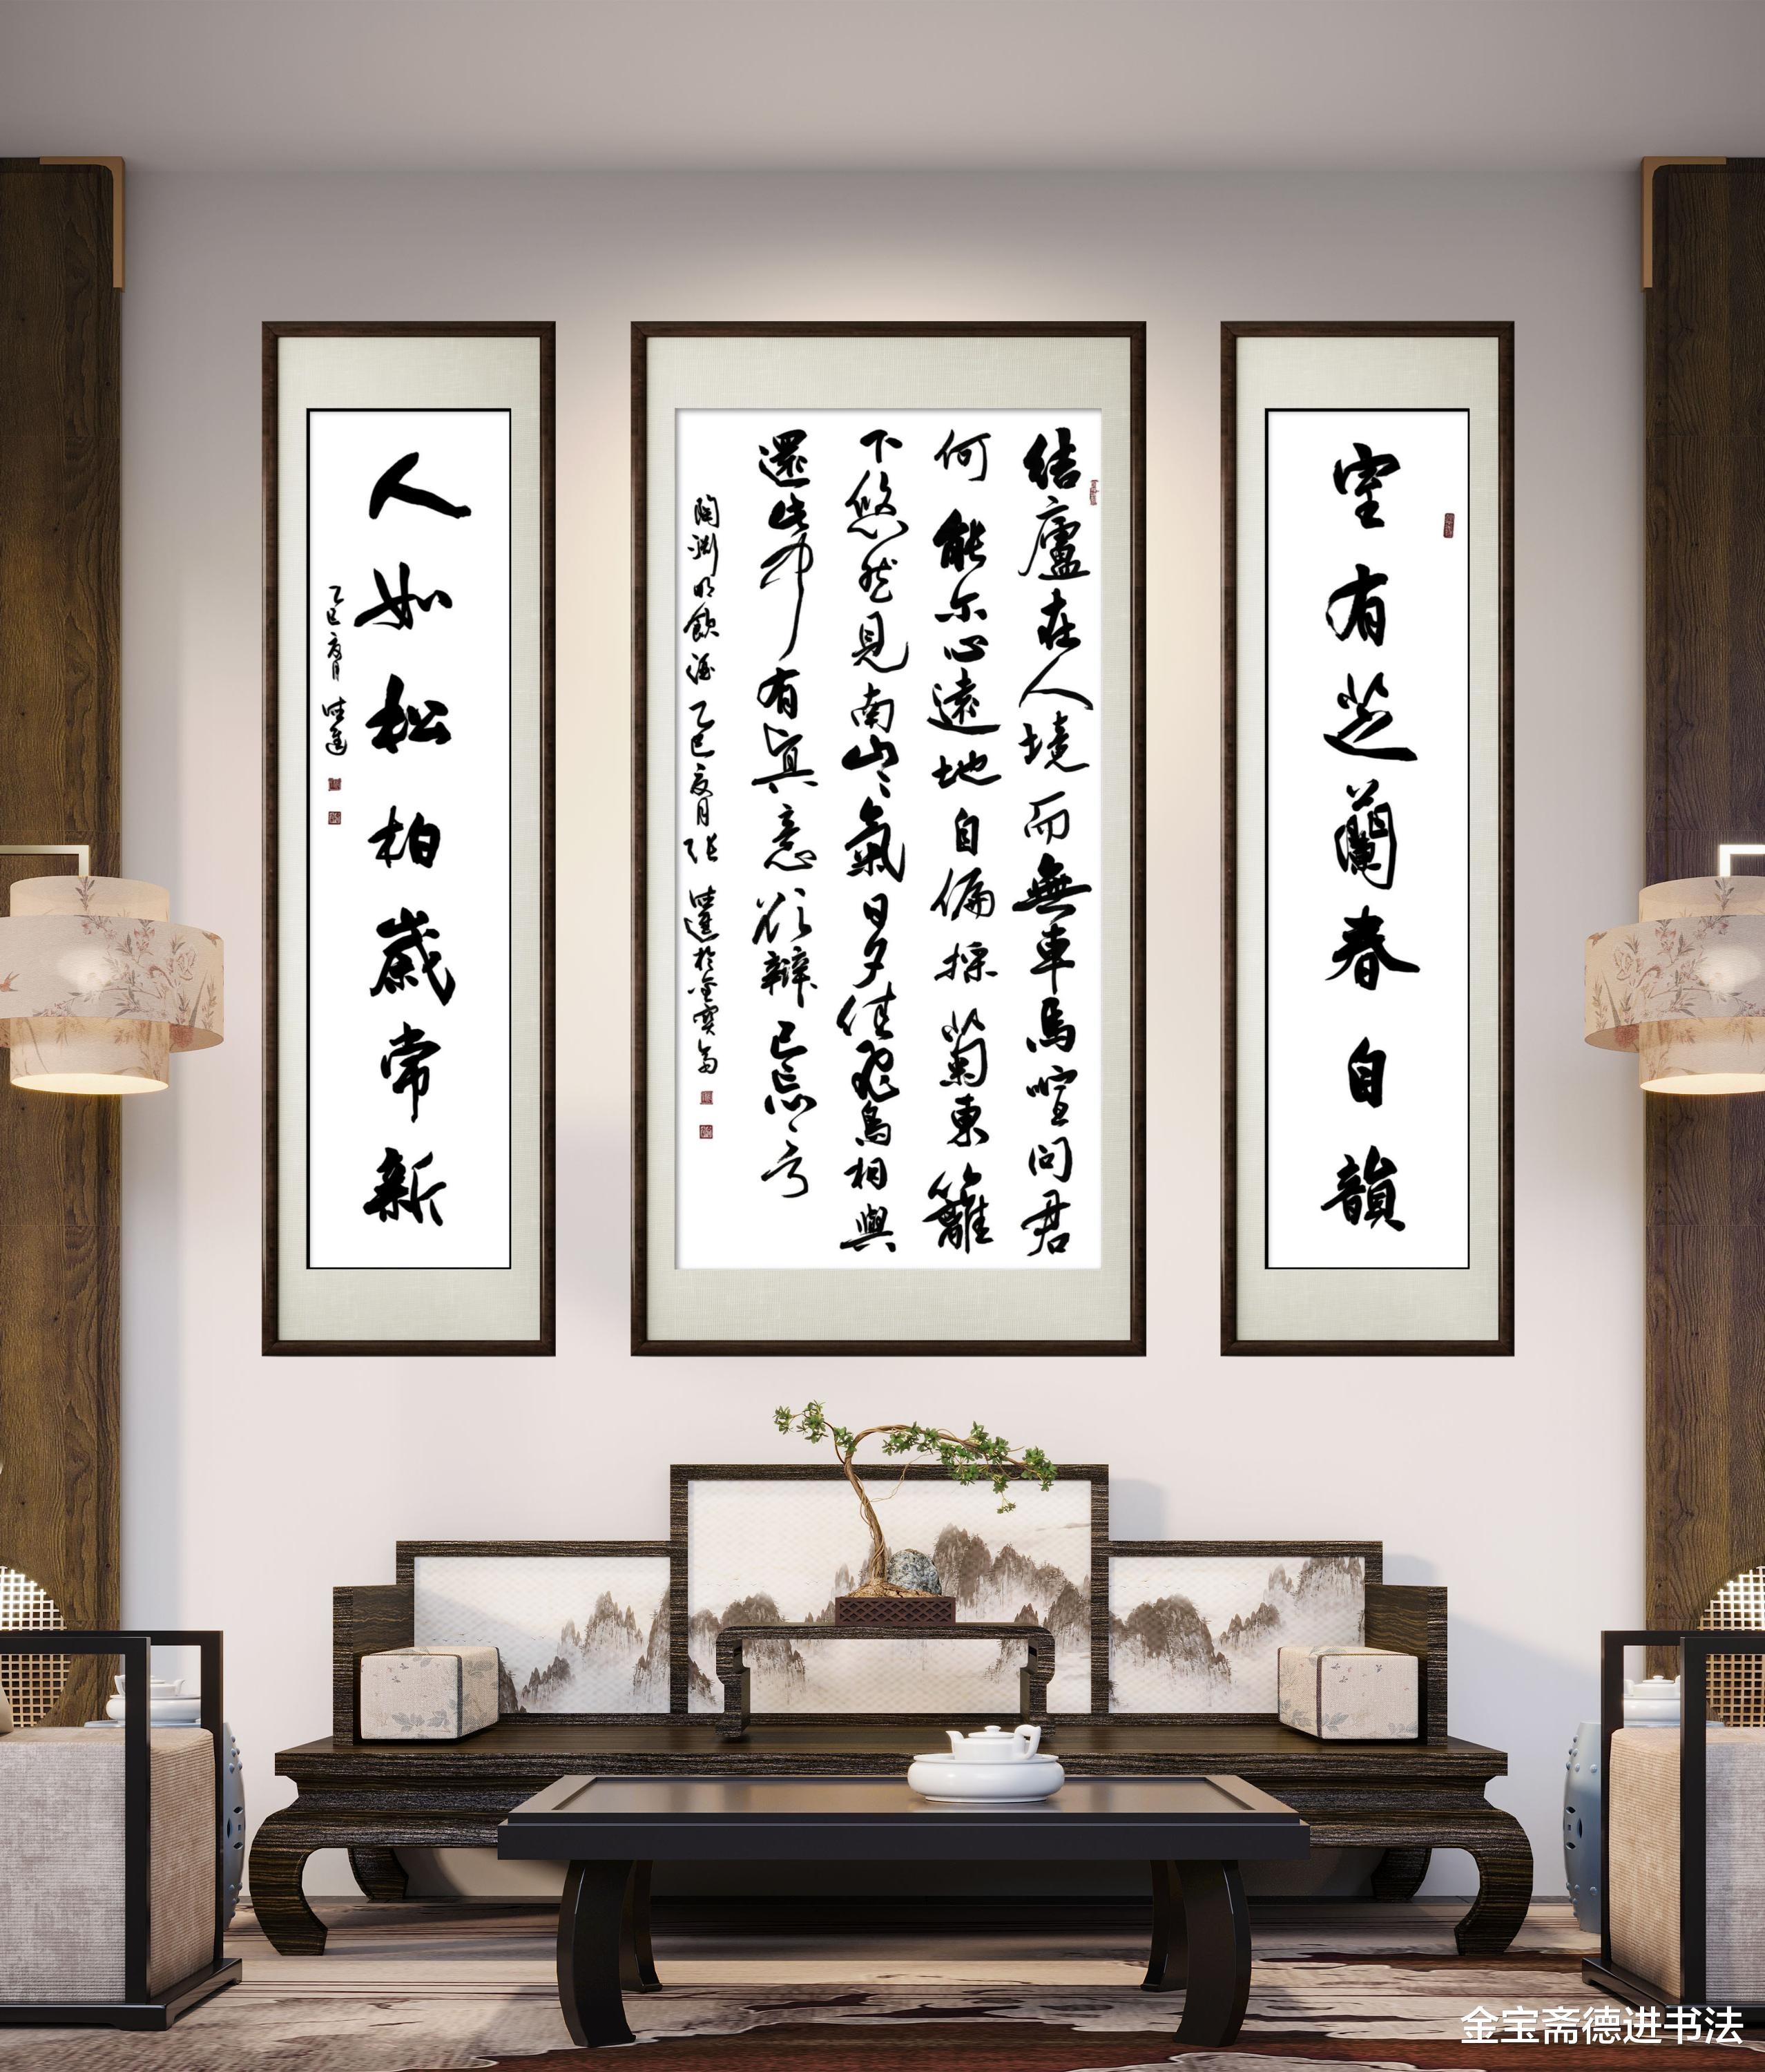 室有芝蘭春自韻
結廬在人境而無車馬喧問君
何能尔心遠地自偏採菊東籬
下悠然見南山々氣日夕佳飛鳥相與
還此中有真意欲辯已忘言
陶渊明飲酒 乙巳夏月張德進於金寶斋
人如松柏歲常新
乙巳夏月 德進
金宝斋德进书法